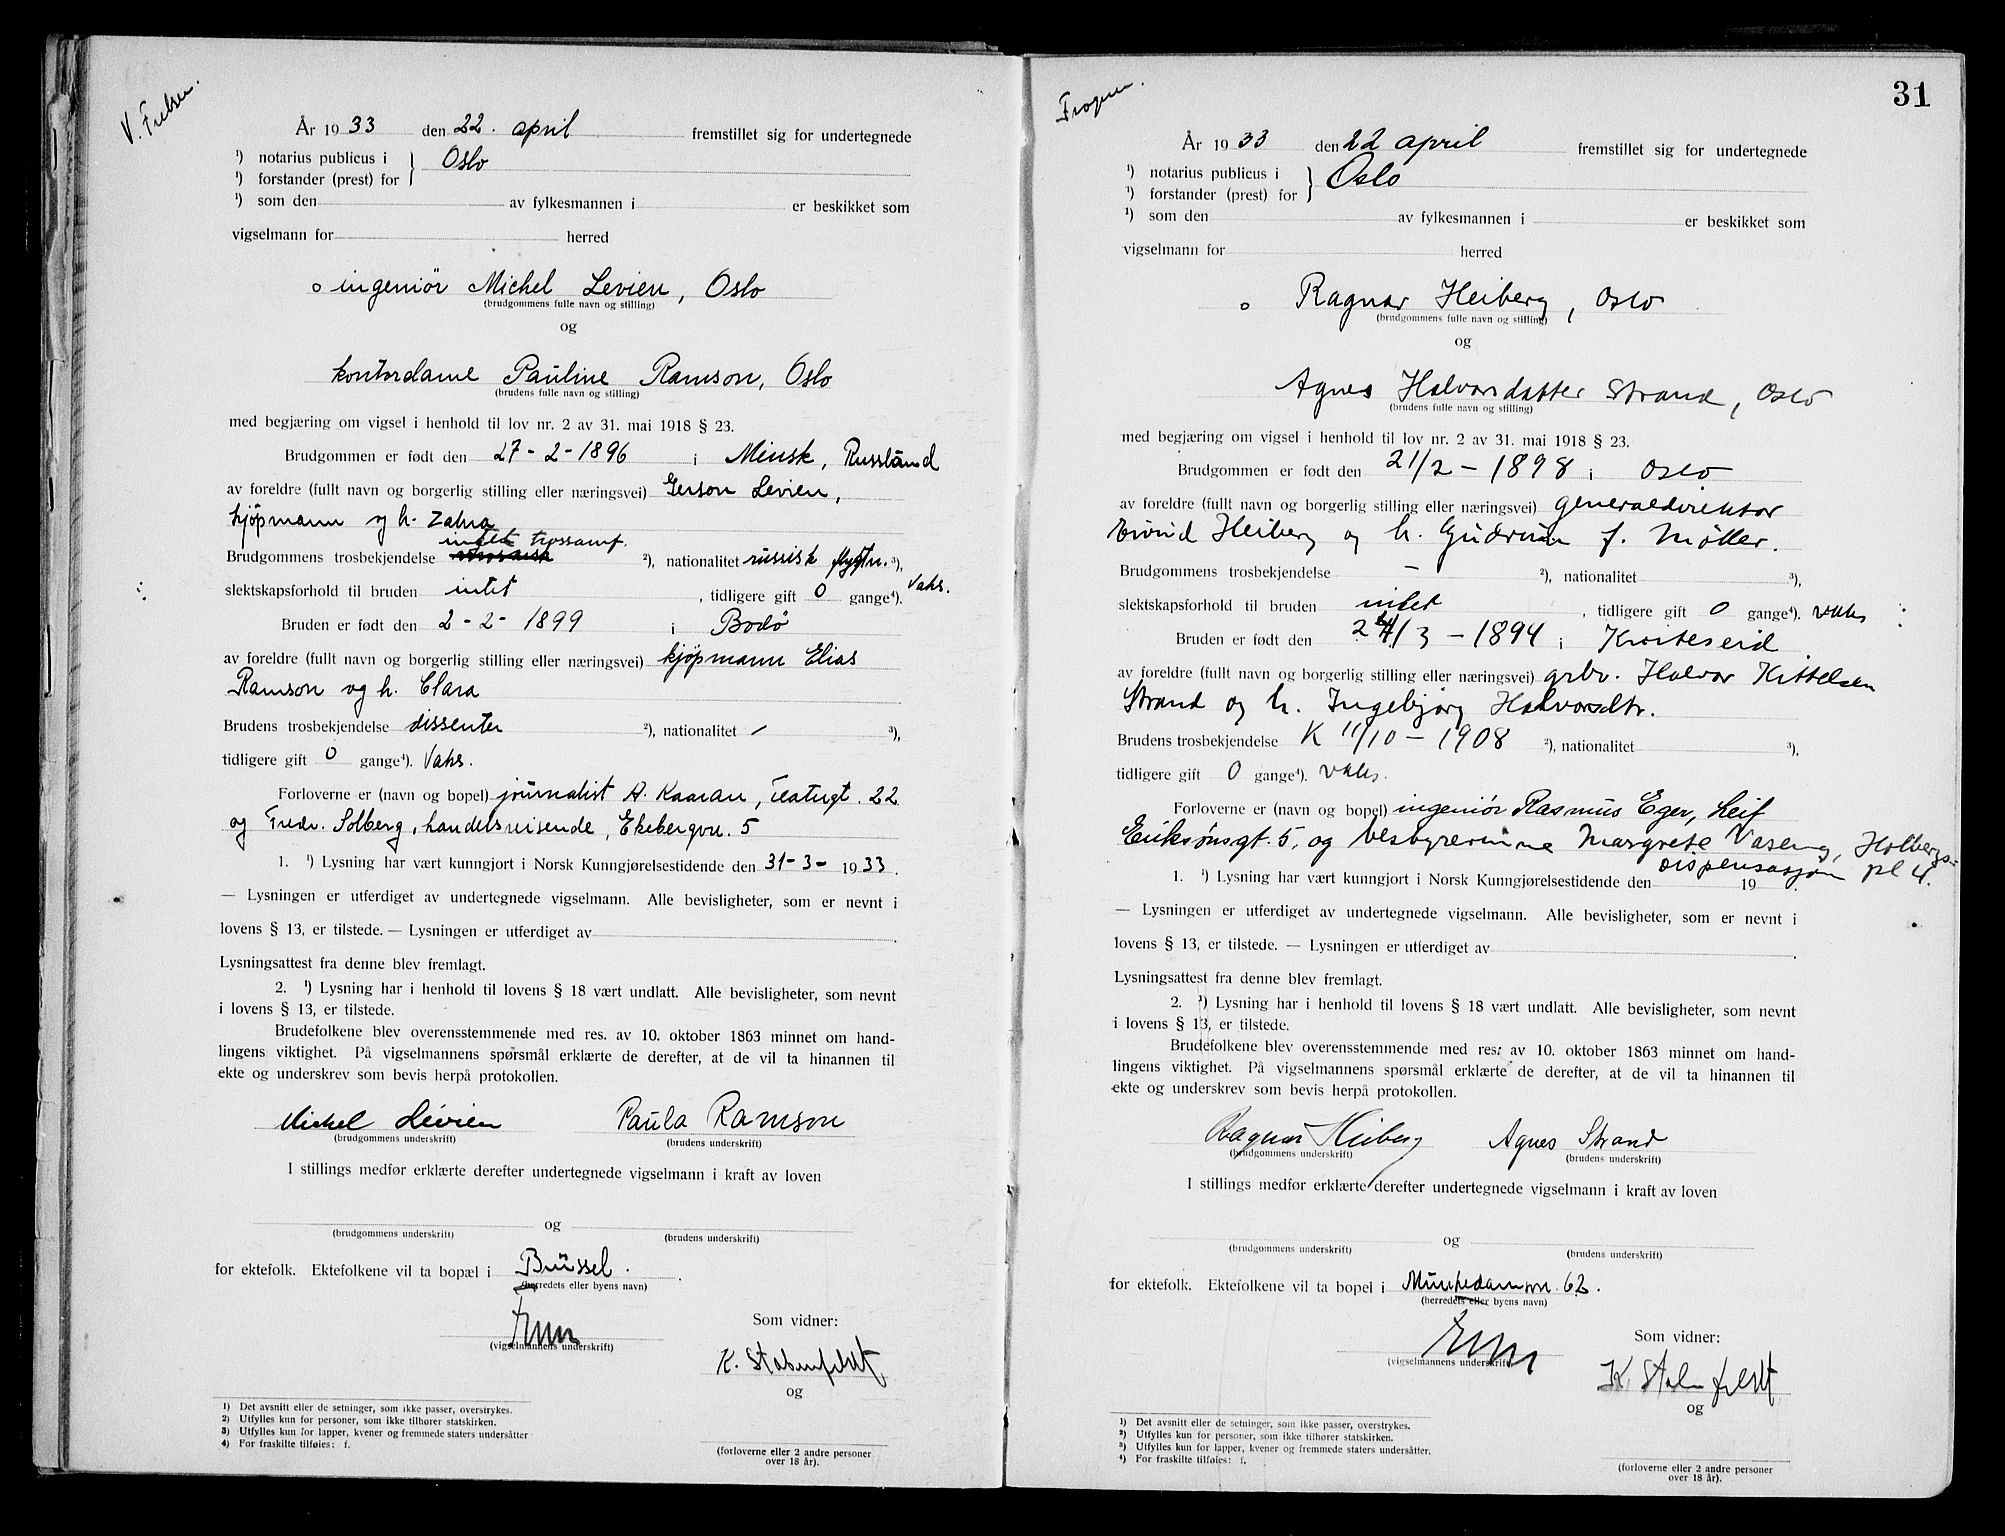 V. Frelser.
År 1933 den 22. april fremstillet sig for undertegnede
¹) notarius publicus i } Oslo
¹) forstander (prest) for
¹) som den av fylkesmannen i er beskikket som
vigselmann for herred
o ingeniør Michel Levien, Oslo
(brudgommens fulle navn og stilling)
og
kontordame Pauline Ramson, Oslo
(brudens fulle navn og stilling)
med begjæring om vigsel i henhold til lov nr. 2 av 31. mai 1918 § 23.
Brudgommen er født den 27-2-1896 i Minsk, Russland
av foreldre (fullt navn og borgerlig stilling eller næringsvei) Gerson Levien,
kjøpmann og h. Zahra
intet trossamf.
Brudgommens trosbekjendelse ²), nationalitet russisk flygtn. ³),
slektskapsforhold til bruden intet, tidligere gift 0 gange⁴). Vaks.
Bruden er født den 2-2-1899 i Bodø
av foreldre (fullt navn og borgerlig stilling eller næringsvei) kjøpmann Elias
Ramson og h. Clara
Brudens trosbekjendelse dissenter ²), nationalitet / ³),
tidligere gift 0 gange⁴). Vaks.
Forloverne er (navn og bopel) journalist A. Kaaran, Teatergt. 22
og Fredr. Solberg, handelsreisende, Ekebergvn. 5
1. ¹) Lysning har vært kunngjort i Norsk Kunngjørelsestidende den 31-3-1933.
— Lysningen er utferdiget av undertegnede vigselmann. Alle bevisligheter, som er nevnt i
lovens § 13, er tilstede. — Lysningen er utferdiget av .
Lysningsattest fra denne blev fremlagt.
2. ¹) Lysning har i henhold til lovens § 18 vært undlatt. Alle bevisligheter, som nevnt
i lovens § 13, er tilstede.
Brudefolkene blev overensstemmende med res. av 10. oktober 1863 minnet om hand-
lingens viktighet. På vigselmannens spørsmål erklærte de derefter, at de vil ta hinannen til
ekte og underskrev som bevis herpå protokollen.
Michel Lévien Paula Ramson
(brudgommens underskrift) (brudens underskrift)
I stillings medfør erklærte derefter undertegnede vigselmann i kraft av loven
og
(brudgommens underskrift) (brudens underskrift)
for ektefolk. Ektefolkene vil ta bopæl i Brüssel.
(herredets eller byens navn)
Som vidner:
(vigselmannens underskrift)
K. Stabenfeldt
og
¹) Det avsnitt eller de setninger, som ikke passer, overstrykes.
²) Utfylles kun for personer, som ikke tilhører statskirken.
³) Utfylles kun for lapper, kvener og fremmede staters undersåtter
⁴) For fraskilte tilføies: f.
(forloverne eller 2 andre personer
over 18 år).
31
Frogner.
År 1933 den 22 april fremstillet sig for undertegnede
¹) notarius publicus i } Oslo
¹) forstander (prest) for
¹) som den av fylkesmannen i er beskikket som
vigselmann for herred
o Ragnar Heiberg, Oslo
(brudgommens fulle navn og stilling)
og
Agnes Halvorsdatter Strand, Oslo
(brudens fulle navn og stilling)
med begjæring om vigsel i henhold til lov nr. 2 av 31. mai 1918 § 23.
Brudgommen er født den 21/2-1898 i Oslo
av foreldre (fullt navn og borgerlig stilling eller næringsvei) generaldirektør
Eivind Heiberg og h. Gudrun f. Møller.
Brudgommens trosbekjendelse - ²), nationalitet ³),
slektskapsforhold til bruden intet, tidligere gift 0 gange⁴). vaks
Bruden er født den 24/3-1894 i Kviteseid
av foreldre (fullt navn og borgerlig stilling eller næringsvei) grbr. Halvor Kittelsen
Strand og h. Ingebjørg Halvorsdtr.
Brudens trosbekjendelse K 11/10-1908 ²), nationalitet ³),
tidligere gift 0 gange⁴). vaks.
Forloverne er (navn og bopel) ingeniør Rasmus Eger, Leif
Eriksønsgt. 5, og bestyrerinne Margrete Vaseng, Holbergs-
dispensasjon pl 4.
1. ¹) Lysning har vært kunngjort i Norsk Kunngjørelsestidende den 19 .
— Lysningen er utferdiget av undertegnede vigselmann. Alle bevisligheter, som er nevnt i
lovens § 13, er tilstede. — Lysningen er utferdiget av .
Lysningsattest fra denne blev fremlagt.
2. ¹) Lysning har i henhold til lovens § 18 vært undlatt. Alle bevisligheter, som nevnt
i lovens § 13, er tilstede.
Brudefolkene blev overensstemmende med res. av 10. oktober 1863 minnet om hand-
lingens viktighet. På vigselmannens spørsmål erklærte de derefter, at de vil ta hinannen til
ekte og underskrev som bevis herpå protokollen.
Ragnar Heiberg Agnes Strand
(brudgommens underskrift) (brudens underskrift)
I stillings medfør erklærte derefter undertegnede vigselmann i kraft av loven
og
(brudgommens underskrift) (brudens underskrift)
for ektefolk. Ektefolkene vil ta bopel i Munkedamsvn. 62.
(herredets eller byens navn)
Som vidner:
(vigselmannens underskrift)
K. Stabenfeldt
og
¹) Det avsnitt eller de setninger, som ikke passer, overstrykes.
²) Utfylles kun for personer, som ikke tilhører statskirken.
³) Utfylles kun for lapper, kvener og fremmede staters undersåtter.
⁴) For fraskilte tilføies: f.
(forloverne eller 2 andre personer
over 18 år).